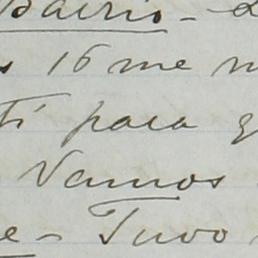 Bairio -
16 me
ti para
Vamos
- Tuvo